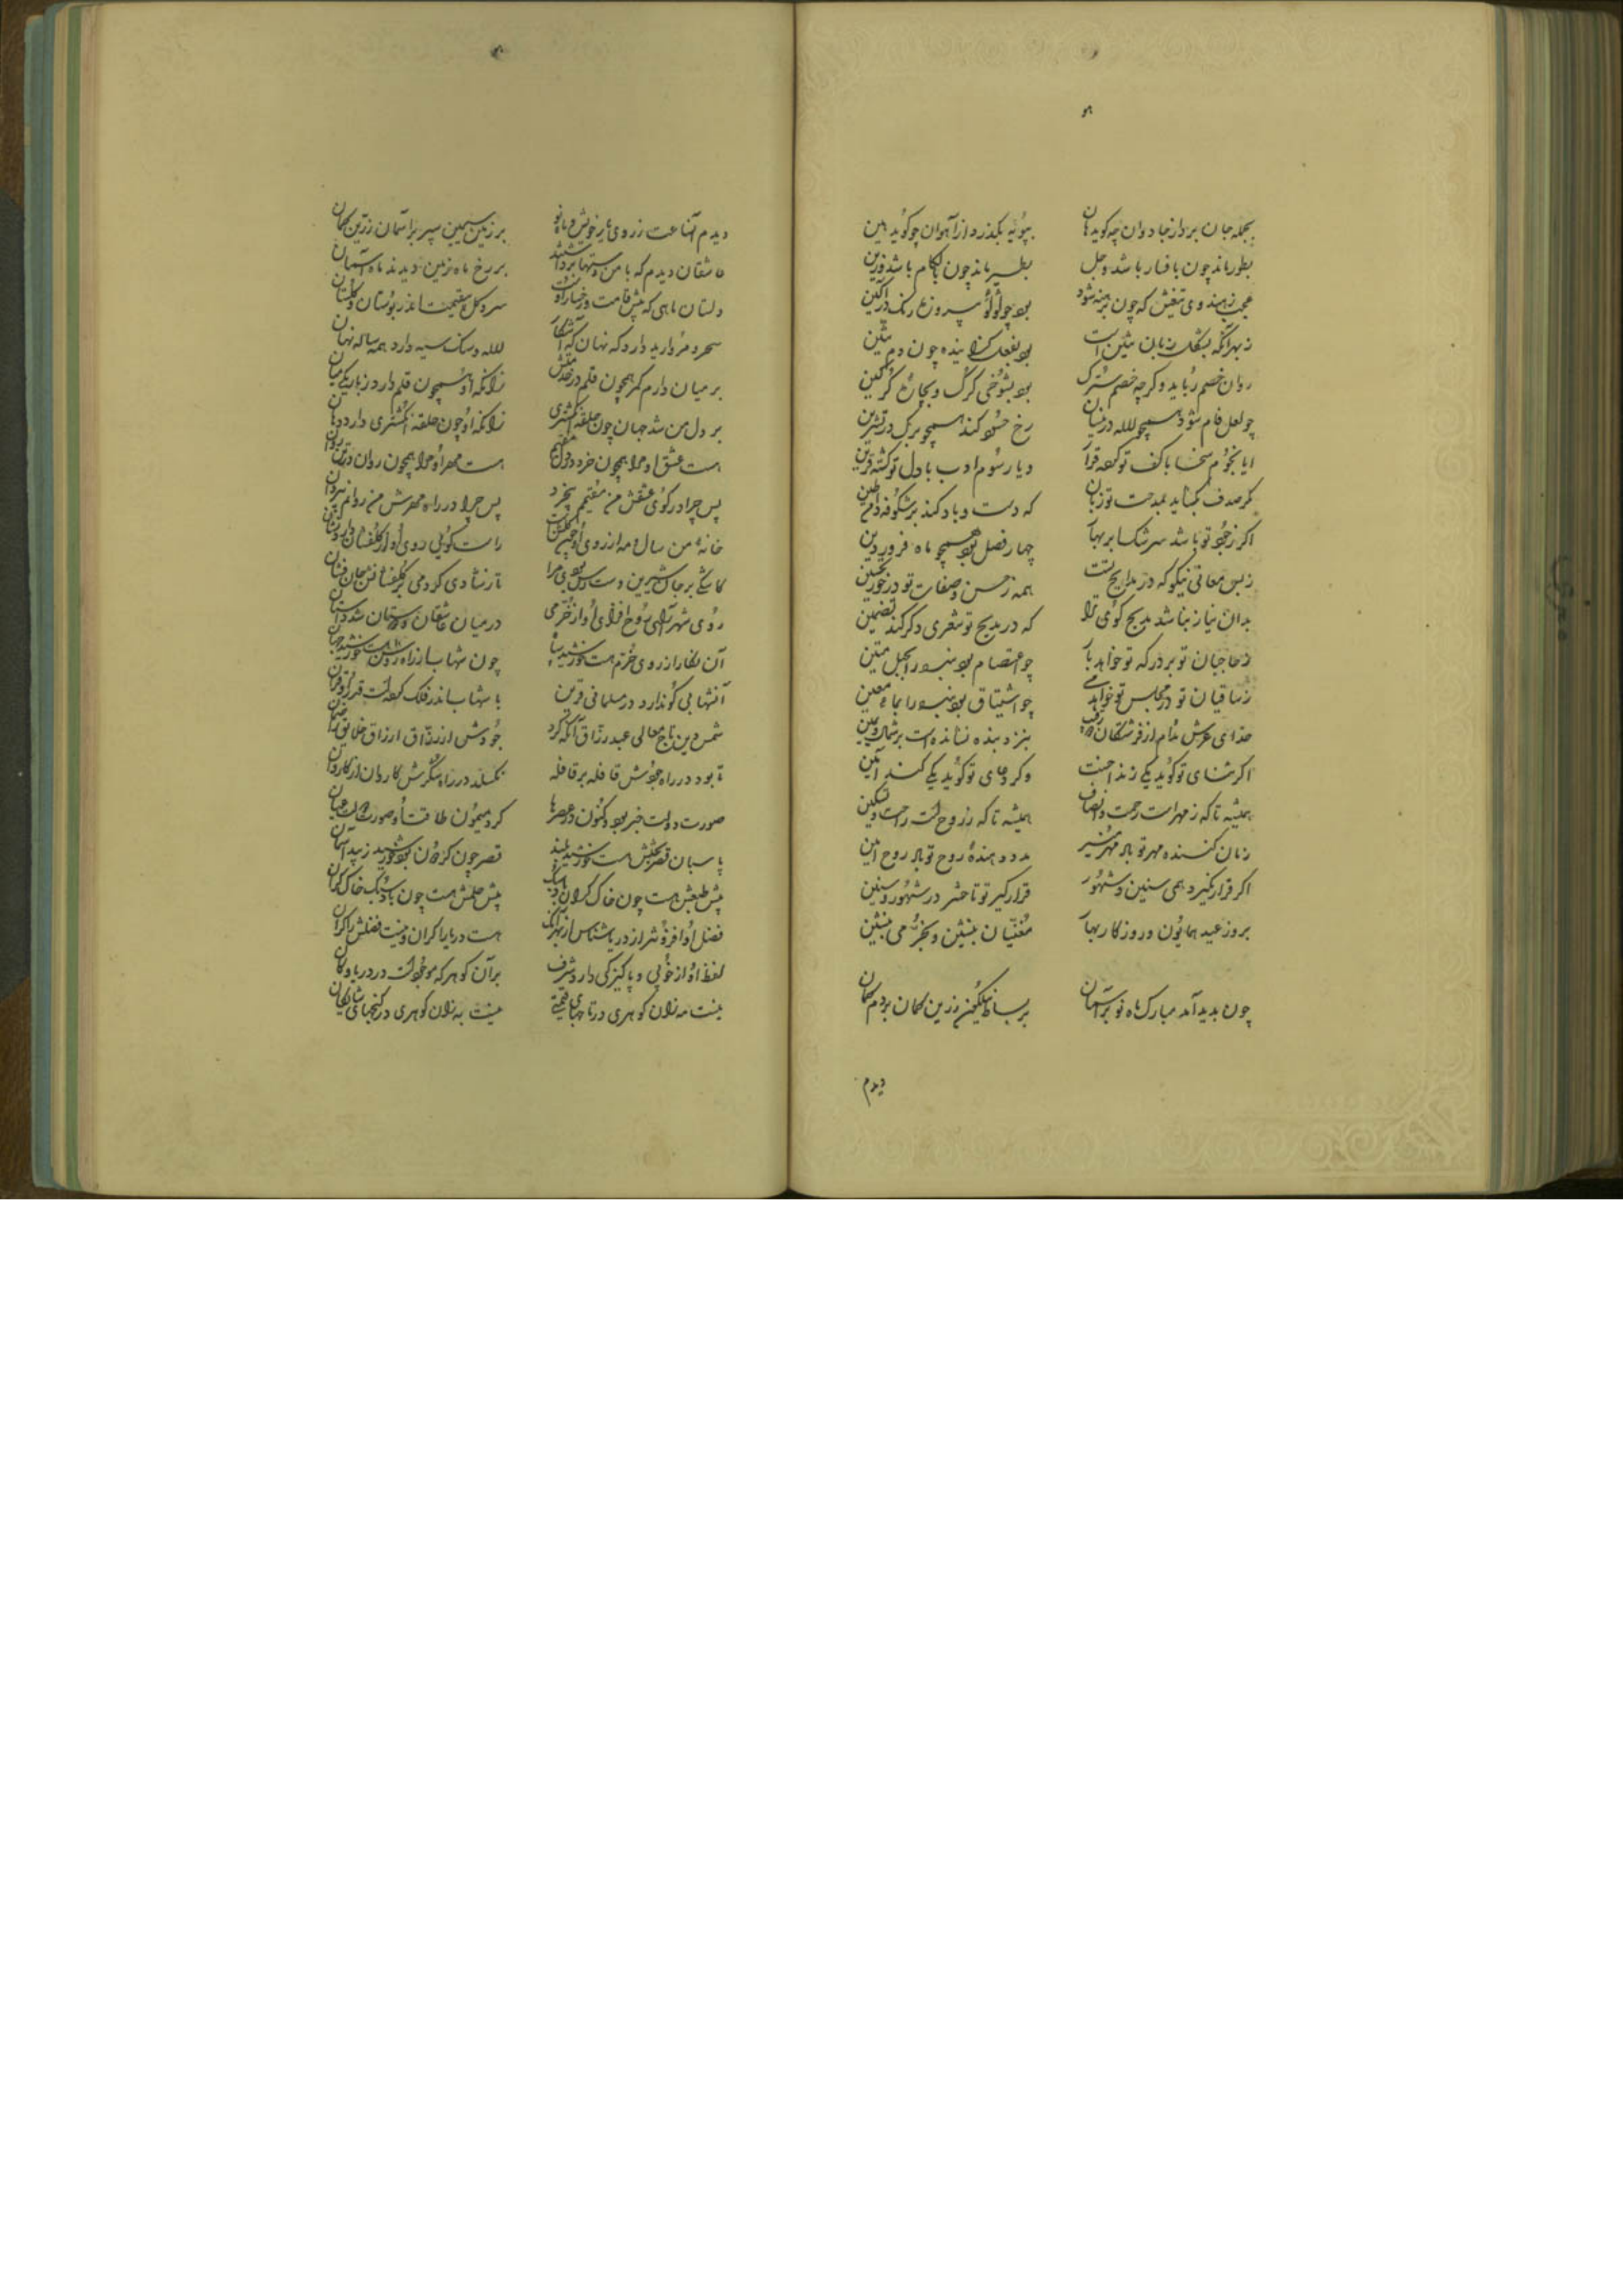 بجمله جان برد از جادوان چه گوید هان    بپویه بگذرد از آهوان چو گوید هین
بطور ماند چون با فسار باشد و جل    بطیر ماند چون با لگام باشد و زین
عجب ز هندوی تیغش که چون برهنه شود    بود چو لؤلؤ پیروزه رنگ در آگین
ز بهر آنکه بشکل زبان تنین است    بود بفعل گزاینده چون دم تنین
روان خصم رباید وگر چه خصم سترک    بود بشوخی گرگ و بچاره گرگین
چو لعل فام شود همچو لاله در نیسان    رخ حسود کند همچو برگ در تشرین
ایا نجوم سخا با کف تو کرده قران    و یا رسوم ادب با دل تو گشته قرین
مگر صدف بگشاید بمدحت تو زبان    که دست و باد کند بر شکوفه در ثمین
اگر ز جود تو باشد سرشک ابر بهار    چهار فصل بود همچو ماه فروردین
ز بس معانی نیکو که در مدایح تست    همه ز حسن و صفات تو درخور تحسین
بدان نیاز نباشد مدیح گوی ترا    که در مدیح تو شعری دگر کند تضمین
ز حاجبان تو بر درگه تو خواهد بار    چو اعتصام بود بنده را بحبل متین
ز ساقیان تو در مجلس تو خواهد می    چو اشتیاق بود بنده را بماء معین
خدای عرش مدام از فرشتگان دو    بنزد بنده نشانده است بر شمال و یمین
اگر ثنای تو گوید یکی زند احسنت    وگر دعای تو گوید یکی کند آمین
همیشه تا که ز مهر است رحمت و انصاف    همیشه تا که ز روح است راحت و تسکین
زیان کننده مهر تو باد مهر منیر    مدد دهنده روح تو باد روح امین
اگر قرار نگیرد همی سنین و شهور    قرار گیر تو تا حشر در شهور و سنین
بروز عید همایون و روزگار بهار    مغنیان بنشین و بخرمی بنشین
چون بدید آمد مبارک ماه نو بر آسمان    بر بساط نیلگون زرین کمان بردم گمان
دیدم
دیدم آن ساعت ز روی یار خویش و ماه نو    بر زمین سیمین سپر بر آسمان زرین کمان
عاشقان دیدم که با من دستها برداشتند    بر رخ ماه زمین دیدند ماه آسمان
دلستان ماهی که پیش قامت و رخسار او    سرو گل بی قیمت اند در بوستان و گلستان
سحر و مروارید دارد گه نهان گه آشکار    لاله و سنگ سیه دارد همه ساله نهان
بر میان دارم کمر همچون قلم در خدمتش    زانکه او همچون قلم دارد ز باریکی میان
بر دل من شد جهان چون حلقه انگشتری    زانکه او چون حلقه انگشتری دارد دهان
هست عشق او مرا همچون خرد در دل مقیم    هست مهر او مرا همچون روان در تن روان
پس چرا در کوی عشقش من مقیمم بیخرد    پس چرا در راه مهرش من روانم بیروان
خانه من سال و مه از روی او چون گلشن است    راست گویی روی او دارد گلفشان
کاشکی بر جان شیرین دسترس بودی مرا    تا ز شادی کردمی بر گلفشانش جان فشان
روی شهر آرای روح افزای او از خرمی    در میان عاشقان و دوستان شد داستان
آن نگار از روی خرم هست خورشید سپاه    چون شهاب از راه روشن هست خورشید جهان
آن شهابی کو ندارد در مسلمانی قرین    با شهاب اندر فلک کرده است قدر او قران
شمس دین تاج معالی عبد رزاق آنکه کرد    جودش از رزاق ارزاق خلایق را ضمان
تا بود در راه جودش قافله بر قافله    نگسلد در راه شکرش کاروان از کاروان
صورت دولت خبر بود و کنون در عصر ما    کرد میمون طلعت او صورت دولت عیان
پاسبان قصر بختش هست خورشید بلند    قصر چون گردون بود خورشید زیبد پاسبان
پیش طبعش هست چون خاک گران باد سبک    پیش حلمش هست چون باد سبک خاک گران
فضل او افزونتر از دریا شناس از بهر آنک    هست دریا را کران و نیست فضلش را کران
لفظ او از خوبی و پاکیزگی دارد شرف    بر آن گوهر که موجود است در دریا و کان
نیست مه زان گوهری در تاجهای قیمتی    نیست به زان گوهری در گنجهای شایگان